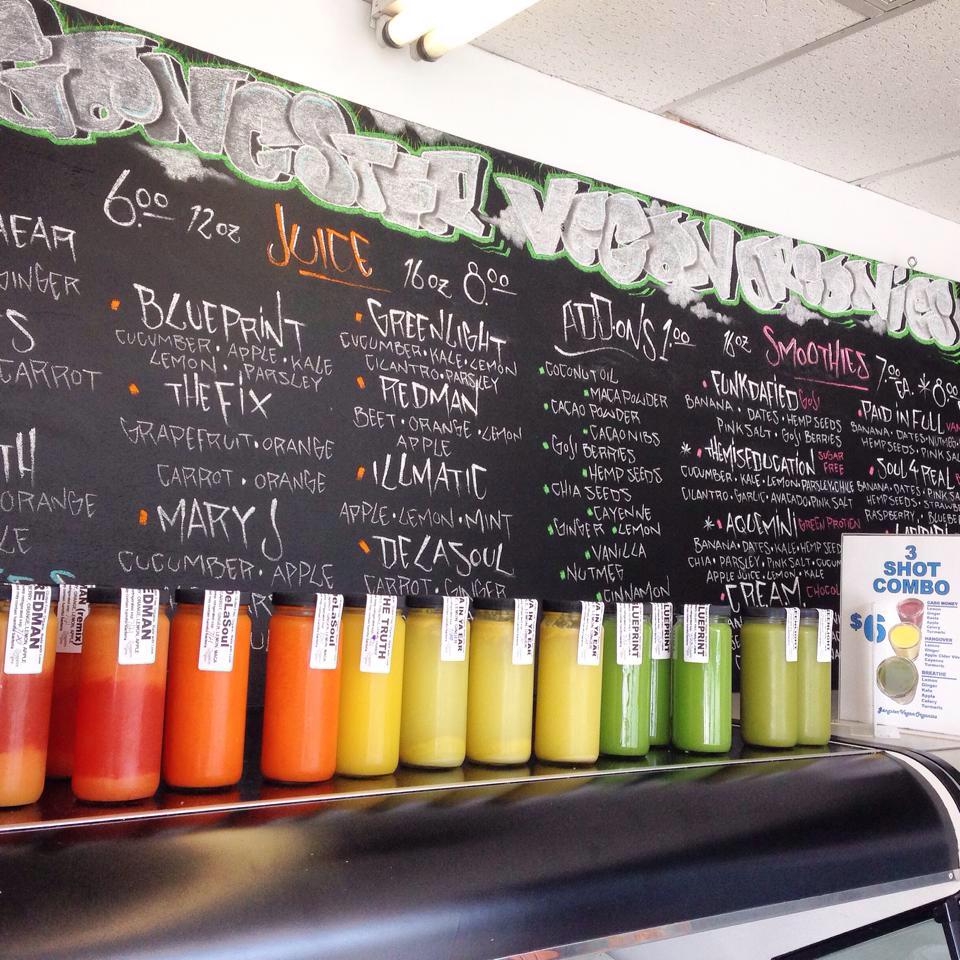 GANGSTER VEGAN ORGANICS
6.00 12oz JUICE 16oz 8.00
GINGER
CARROT
ORANGE
BLUEPRINT
CUCUMBER · APPLE · KALE
LEMON · PARSLEY
THE FIX
GRAPEFRUIT · ORANGE
CARROT · ORANGE
MARY J
CUCUMBER · APPLE
GREENLIGHT
CUCUMBER · KALE · LEMON
CILANTRO · PARSLEY
REDMAN
BEET · ORANGE · LEMON
APPLE
ILLMATIC
APPLE · LEMON · MINT
DELASOUL
CARROT · GINGER
ADD-ONS 1.00
COCONUT OIL
MACA POWDER
CACAO POWDER
CACAO NIBS
GOJI BERRIES
HEMP SEEDS
CHIA SEEDS
CAYENNE
GINGER · LEMON
VANILLA
NUTMEG
CINNAMON
SMOOTHIES 7.00 EA. * 8.00
FUNKDAFIED GOJI
BANANA · DATES · HEMP SEEDS
PINK SALT · GOJI BERRIES
* THE MISEDUCATION SUGAR FREE
CUCUMBER · KALE · LEMON · PARSLEY · CHILE
CILANTRO · GARLIC · AVOCADO · PINK SALT
* AQUEMINI GREEN PROTIEN
BANANA · DATES · KALE · HEMP SEED
CHIA · PARSLEY · PINK SALT · CUCUM
APPLE JUICE · LEMON · KALE
CREAM CHOCOL
PAID IN FULL VAN
BANANA · DATES · NUTMEG
HEMP SEEDS · PINK SAL
SOUL 4 REAL
BANANA · DATES · PINK SA
HEMP SEEDS · STRAWB
RASPBERRY · BLUEBE
REDMAN
(remix)
REDMAN
DeLaSoul
DeLaSoul
THE TRUTH
IN YA EAR
IN YA EAR
IN YA EAR
BLUEPRINT
BLUEPRINT
BLUEPRINT
3
SHOT
COMBO
$6
CASH MONEY
Lemon
Ginger
Apple
Celery
Turmeric
HANGOVER
Lemon
Ginger
Apple Cider Vin
Cayenne
Turmeric
BREATHE
Lemon
Ginger
Kale
Apple
Celery
Turmeric
Gangster Vegan Organics